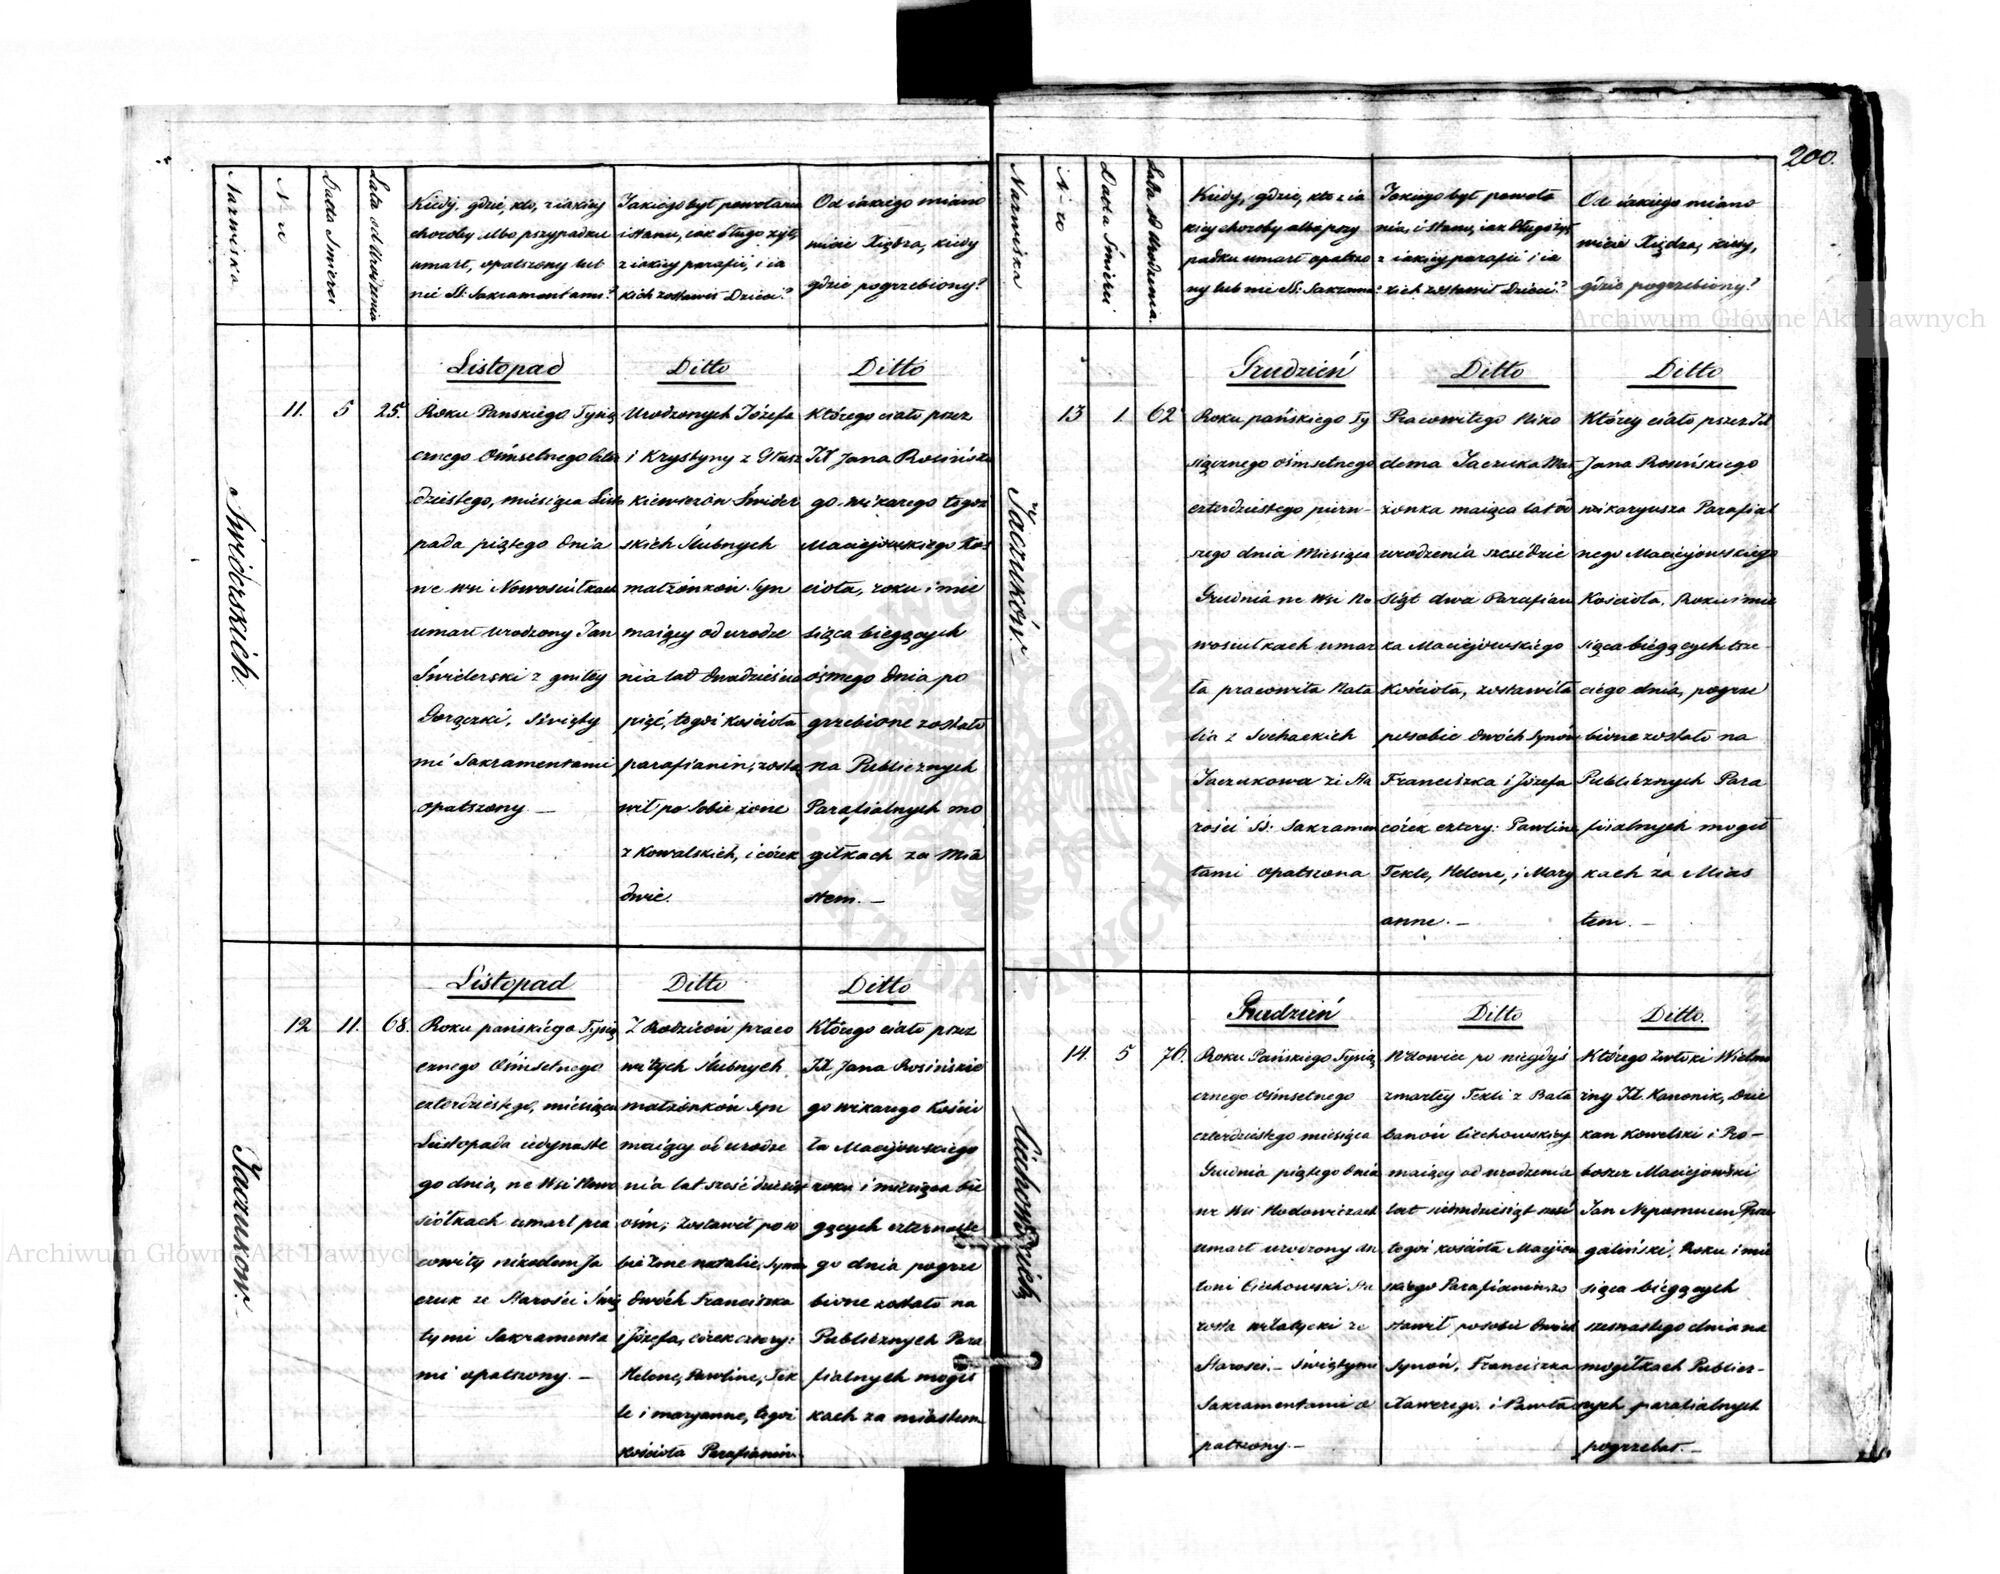 200.
Nazwiska
N-ro
Datta Śmierci
Lata od Urodzenia
Kiedy, gdzie, kto, z iakiey
choroby albo przypadku
umarł, opatrzony lub
nie SS. Sakramentami?
Jakiego był powołania
i stanu, iak długo żył,
z iakiey parafii, i ia
kich zostawił Dzieci?
Od iakiego miano
wicie Xiędza, kiedy
gdzie pogrzebiony?
Świderskich
11.
5
25.
Listopad
Roku Panskiego Tysią
cznego Ośmsetnego Czter
dziestego, miesiąca Listo
pada piątego dnia
we wsi Nowosiułkach
umarł urodzony Jan
Świderski z gniłey
Gorączki, Swięty
mi Sakramentami
opatrzony. —
Ditto
Urodzonych Józefa
i Krystyny z Głusz
kiewiczów Świder
skich Slubnych
małżonków Syn
maiący od urodze
nia lat dwadzieścia
pięć, tegoż kościoła
parafianin, zosta
wił po sobie żone
z Kowalskich, i córek
dwie.
Ditto
Którego ciało przez
JX Jana Rosińskie
go wikarego tegoż
Maciejowskiego Koś
cioła, roku i mie
siąca bieżących
ósmego dnia po
grzebione zostało
na Publicznych
Parafialnych mo
giłkach za Mia
stem. —
Jaczuków.
12
11.
68.
Listopad
Roku pańskiego Tysią
cznego Ośmsetnego
czterdziestego, miesiąca
Listopada iedynaste
go dnia, we Wsi Nowo
siółkach umarł pra
cowity nikodem Ja
czuk ze Starości Świę
tymi Sakramenta
mi opatrzony. —
Ditto
Z Rodziców praco
witych Slubnych
małżonków Syn
maiący od urodze
nia lat sześćdziesiąt
ośm; zostawił po so
bie Żone natalie, Synów
dwóch Franciszka
i Józefa, córek cztery:
Helene, Pawline, Tek
le i maryanne, tegoż
kościoła Parafianin.
Ditto
Którego ciało przez
JX Jana Rosińskie
go wikarego Kości
ła Maciejowskiego
roku i miesiąca bie
gących czternaste
go dnia pogrze
bione zostało na
Publicznych Para
fialnych mogił
kach za miastem
Nazwiska
N-ro
Datta Śmierci
Lata od Urodzenia.
Kiedy, gdzie, kto z ia
kiey choroby albo przy
padku umarł opatrzo
ny lub nie SS. Sakrame?
Jakiego był powoła
nia, i stanu, iak długo żył
z iakiey parafii i ia
kich zostawił Dzieci?
Od iakiego miano
wicie Xiędza, kiedy,
gdzie pogrzebiony?
Jaczuków
13
1.
62
Grudzień
Roku pańskiego Ty
siącznego ośmsetnego
czterdziestego pierw-
szego dnia Miesiąca
Grudnia we Wsi No
wosiułkach umar
ła pracowita Nata
lia z Suchackich
Jaczukowa ze Sta
rości SS: Sakramen
tami opatrzona
Ditto
Pracowitego Niko
dema Jaczuka Mał
żonka maiąca lat od
urodzenia sześćdzie
siąt dwa Parafian
ka Maciejowskiego
Kościoła, zostawiła
po sobie dwóch Synów
Franciszka i Józefa
córek cztery: Pawline
Tekle, Helene, i Mary
anne. —
Ditto
Którey ciało przez JX
Jana Rosińskiego
wikaryusza Parafial
nego Maciejowskiego
Kościoła. Roku i mie
siąca bieżących trze
ciego dnia, pogrze
bione zostało na
Publicznych Para
fialnych mogił
kach za Mias
tem. —
Cichowskich
14.
5
76.
Grudzień
Roku Pańskiego Tysią
cznego Ośmsetnego
czterdziestego miesiąca
Grudnia piątego dnia
we Wsi Hodowiczach
umarł urodzony An
toni Cichowski Sta
rosta witatycki ze
Starosci — Świętymi
Sakramentami o
patrzony. —
Ditto
Wdowiec po niegdyś
zmarłey Tekli z Bała
banów Cichowskiey
maiący od urodzenia
lat siedmdziesiąt sześć
tegoż kościoła Maciejow
skiego Parafianin, zo
stawił po sobie dwóch
Synów, Franciszka
Xawerego i Pawła
Ditto.
Którego zwłoki Wielmo
żny JX. Kanonik, Dzie
kan Kowelski i Pro-
boszcz Maciejowski
Jan Nepomucen Grze
galiński, Roku i mie
siąca biegących
szesnastego dnia na
mogiłkach Publicz-
nych parafialnych
pogrzebał. —
Archiwum Główne Akt Dawnych
Archiwum Główne Akt Dawnych